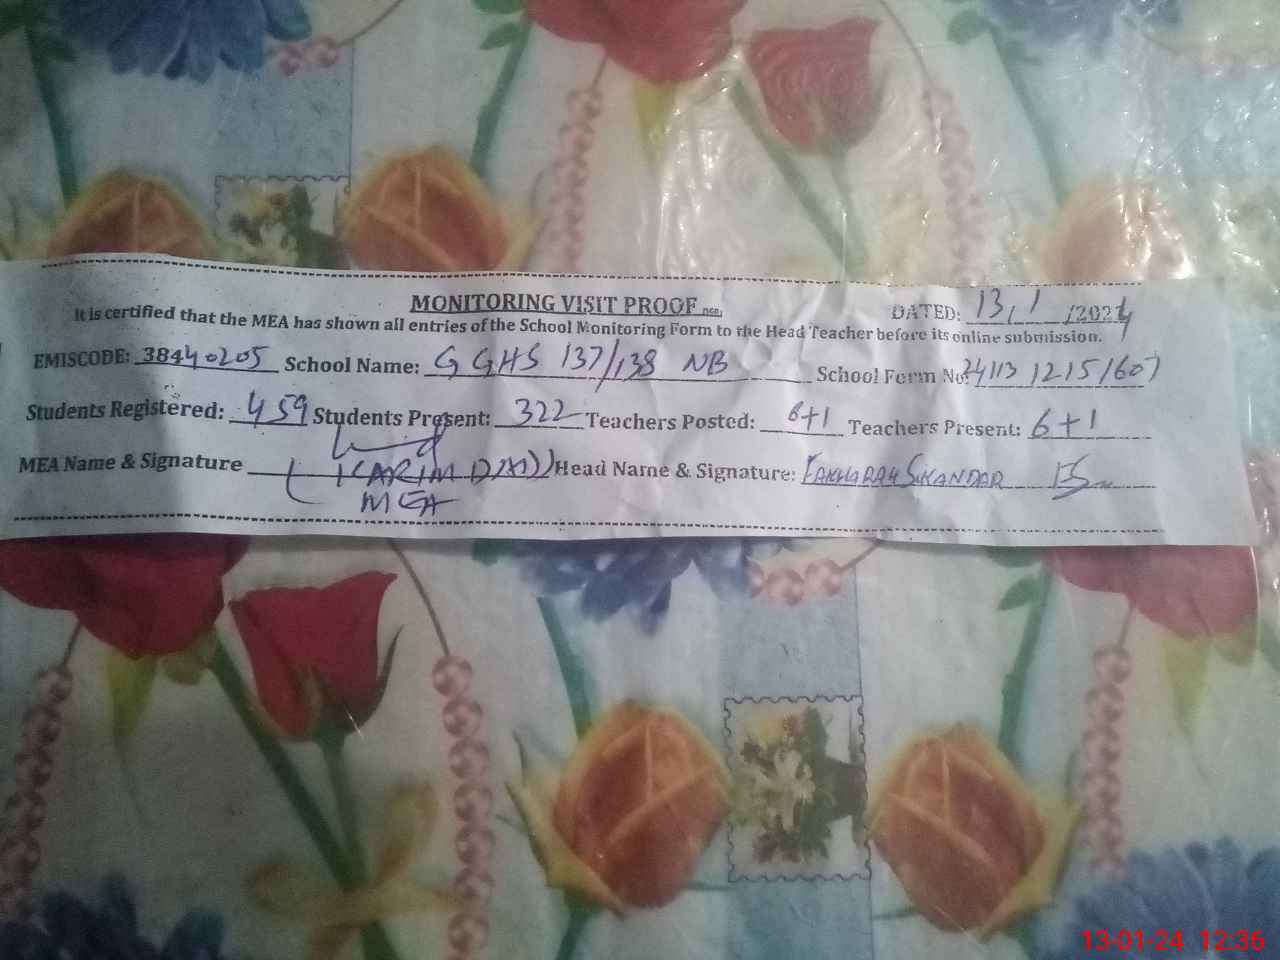 MONITORING VISIT PROOF
DATED: 13/1/2024
It is certified that the MEA has shown all entries of the School Monitoring Form to the Head Teacher before its online submission.
EMISCODE: 38440205 School Name: GGHS 137/138 NB School Form No:
Students Registered: 459 Students Present: 322 Teachers Posted: 6+1 Teachers Present: 6+1
MEA Name & Signature (KARIM DAD) Head Name & Signature: FAKHARAH SIKANDAR
MEA
13-01-24 12:36